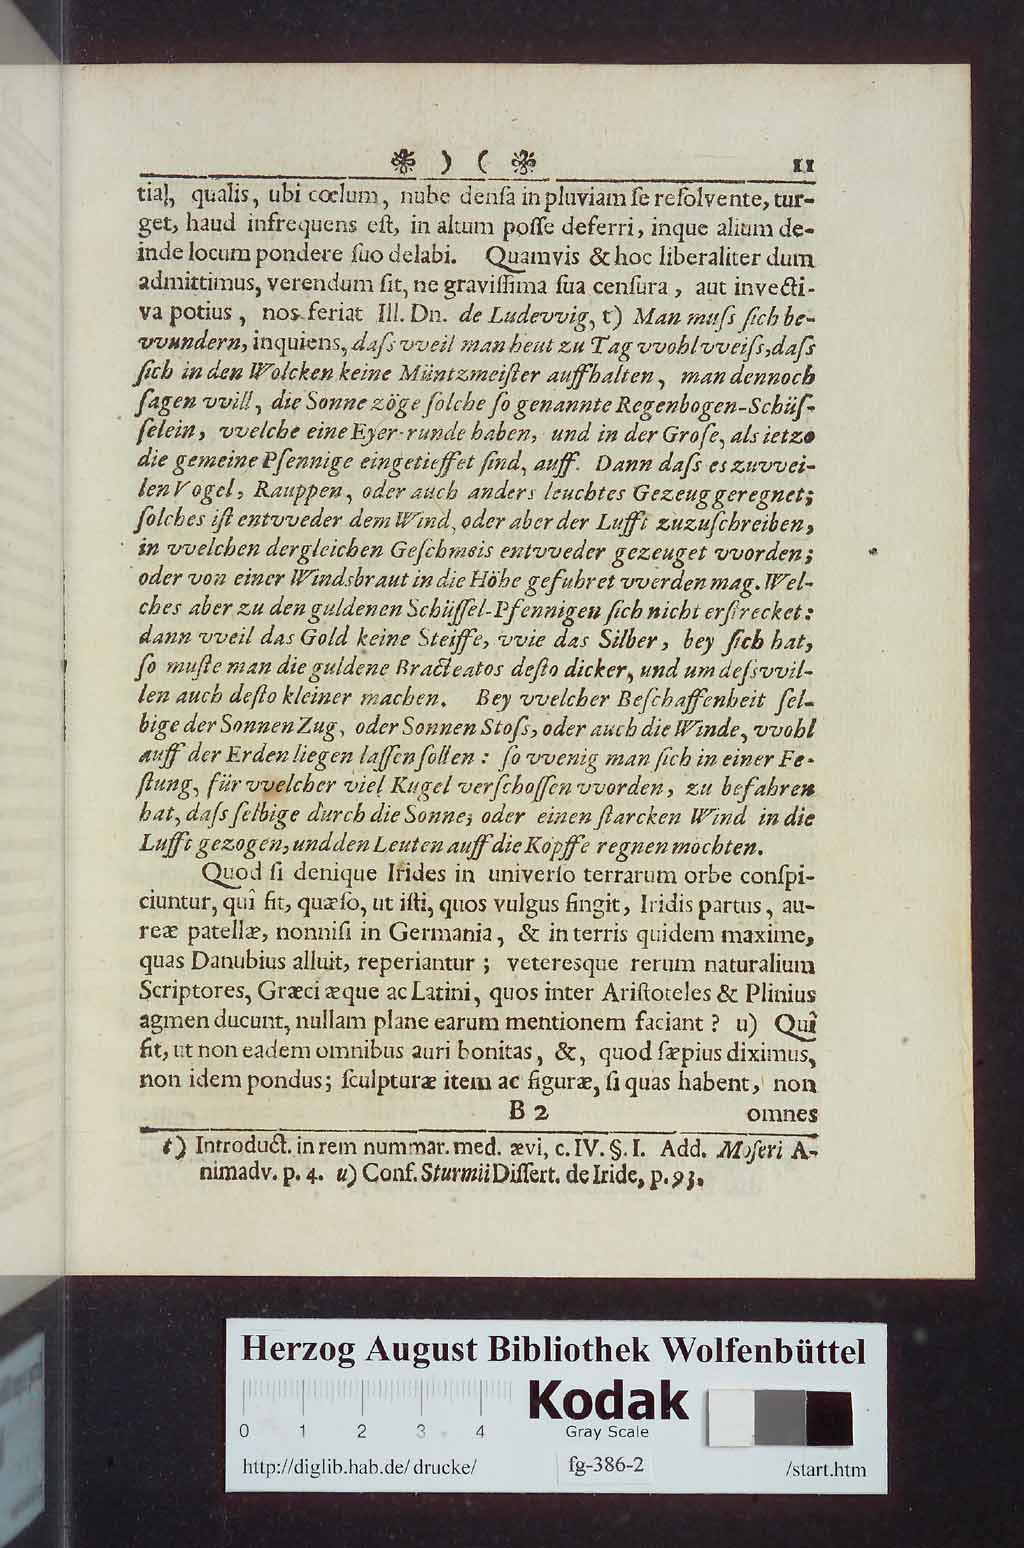 ❧ ) ( ❧ 11
tia, qualis, ubi cœlum, nube denſa in pluviam ſe reſolvente, tur-
get, haud infrequens eſt, in altum poſſe deferri, inque alium de-
inde locum pondere ſuo delabi. Quamvis & hoc liberaliter dum
admittimus, verendum ſit, ne graviſſima ſua cenſura, aut invecti-
va potius, nos feriat Ill. Dn. de Ludevvig, t) Man muſs ſich be-
vvundern, inquiens, daſs vveil man heut zu Tag vvohl vveiſs, daſs
ſich in den Wolcken keine Müntzmeiſter auffhalten, man dennoch
ſagen vvill, die Sonne zöge ſolche ſo genannte Regenbogen-Schüſ-
ſelein, vvelche eine Eyer-runde haben, und in der Groſe, als ietzo
die gemeine Pfennige eingetieffet ſind, auff. Dann daſs es zuvvei-
len Vogel, Rauppen, oder auch anders leuchtes Gezeug geregnet;
ſolches iſt entvveder dem Wind, oder aber der Lufft zuzuſchreiben,
in vvelchen dergleichen Geſchmeis entvveder gezeuget vvorden;
oder von einer Windsbraut in die Höhe gefuhret vverden mag. Wel-
ches aber zu den guldenen Schüſſel-Pfennigen ſich nicht erſtrecket:
dann vveil das Gold keine Steiffe, vvie das Silber, bey ſich hat,
ſo muſte man die guldene Bracteatos deſto dicker, und um deſsvvil-
len auch deſto kleiner machen. Bey vvelcher Beſchaffenheit ſel-
bige der Sonnen Zug, oder Sonnen Stoſs, oder auch die Winde, vvohl
auff der Erden liegen laſſen ſollen: ſo vvenig man ſich in einer Fe-
ſtung, für vvelcher viel Kugel verſchoſſen vvorden, zu befahren
hat, daſs ſelbige durch die Sonne, oder einen ſtarcken Wind in die
Lufft gezogen, und den Leuten auff die Köpffe regnen mochten.
Quod ſi denique Irides in univerſo terrarum orbe conſpi-
ciuntur, quî fit, quæſo, ut iſti, quos vulgus fingit, Iridis partus, au-
reæ patellæ, nonniſi in Germania, & in terris quidem maxime,
quas Danubius alluit, reperiantur; veteresque rerum naturalium
Scriptores, Græci æque ac Latini, quos inter Ariſtoteles & Plinius
agmen ducunt, nullam plane earum mentionem faciant? u) Quî
fit, ut non eadem omnibus auri bonitas, &, quod ſæpius diximus,
non idem pondus; ſculpturæ item ac figuræ, ſi quas habent, non
B 2 omnes
t) Introduct. in rem nummar. med. ævi, c. IV. §. I. Add. Moſeri A-
nimadv. p. 4. u) Conf. Sturmii Diſſert. de Iride, p. 93.
Herzog August Bibliothek Wolfenbüttel
Kodak
0 1 2 3 4
Gray Scale
http://diglib.hab.de/drucke/ fg-386-2 /start.htm